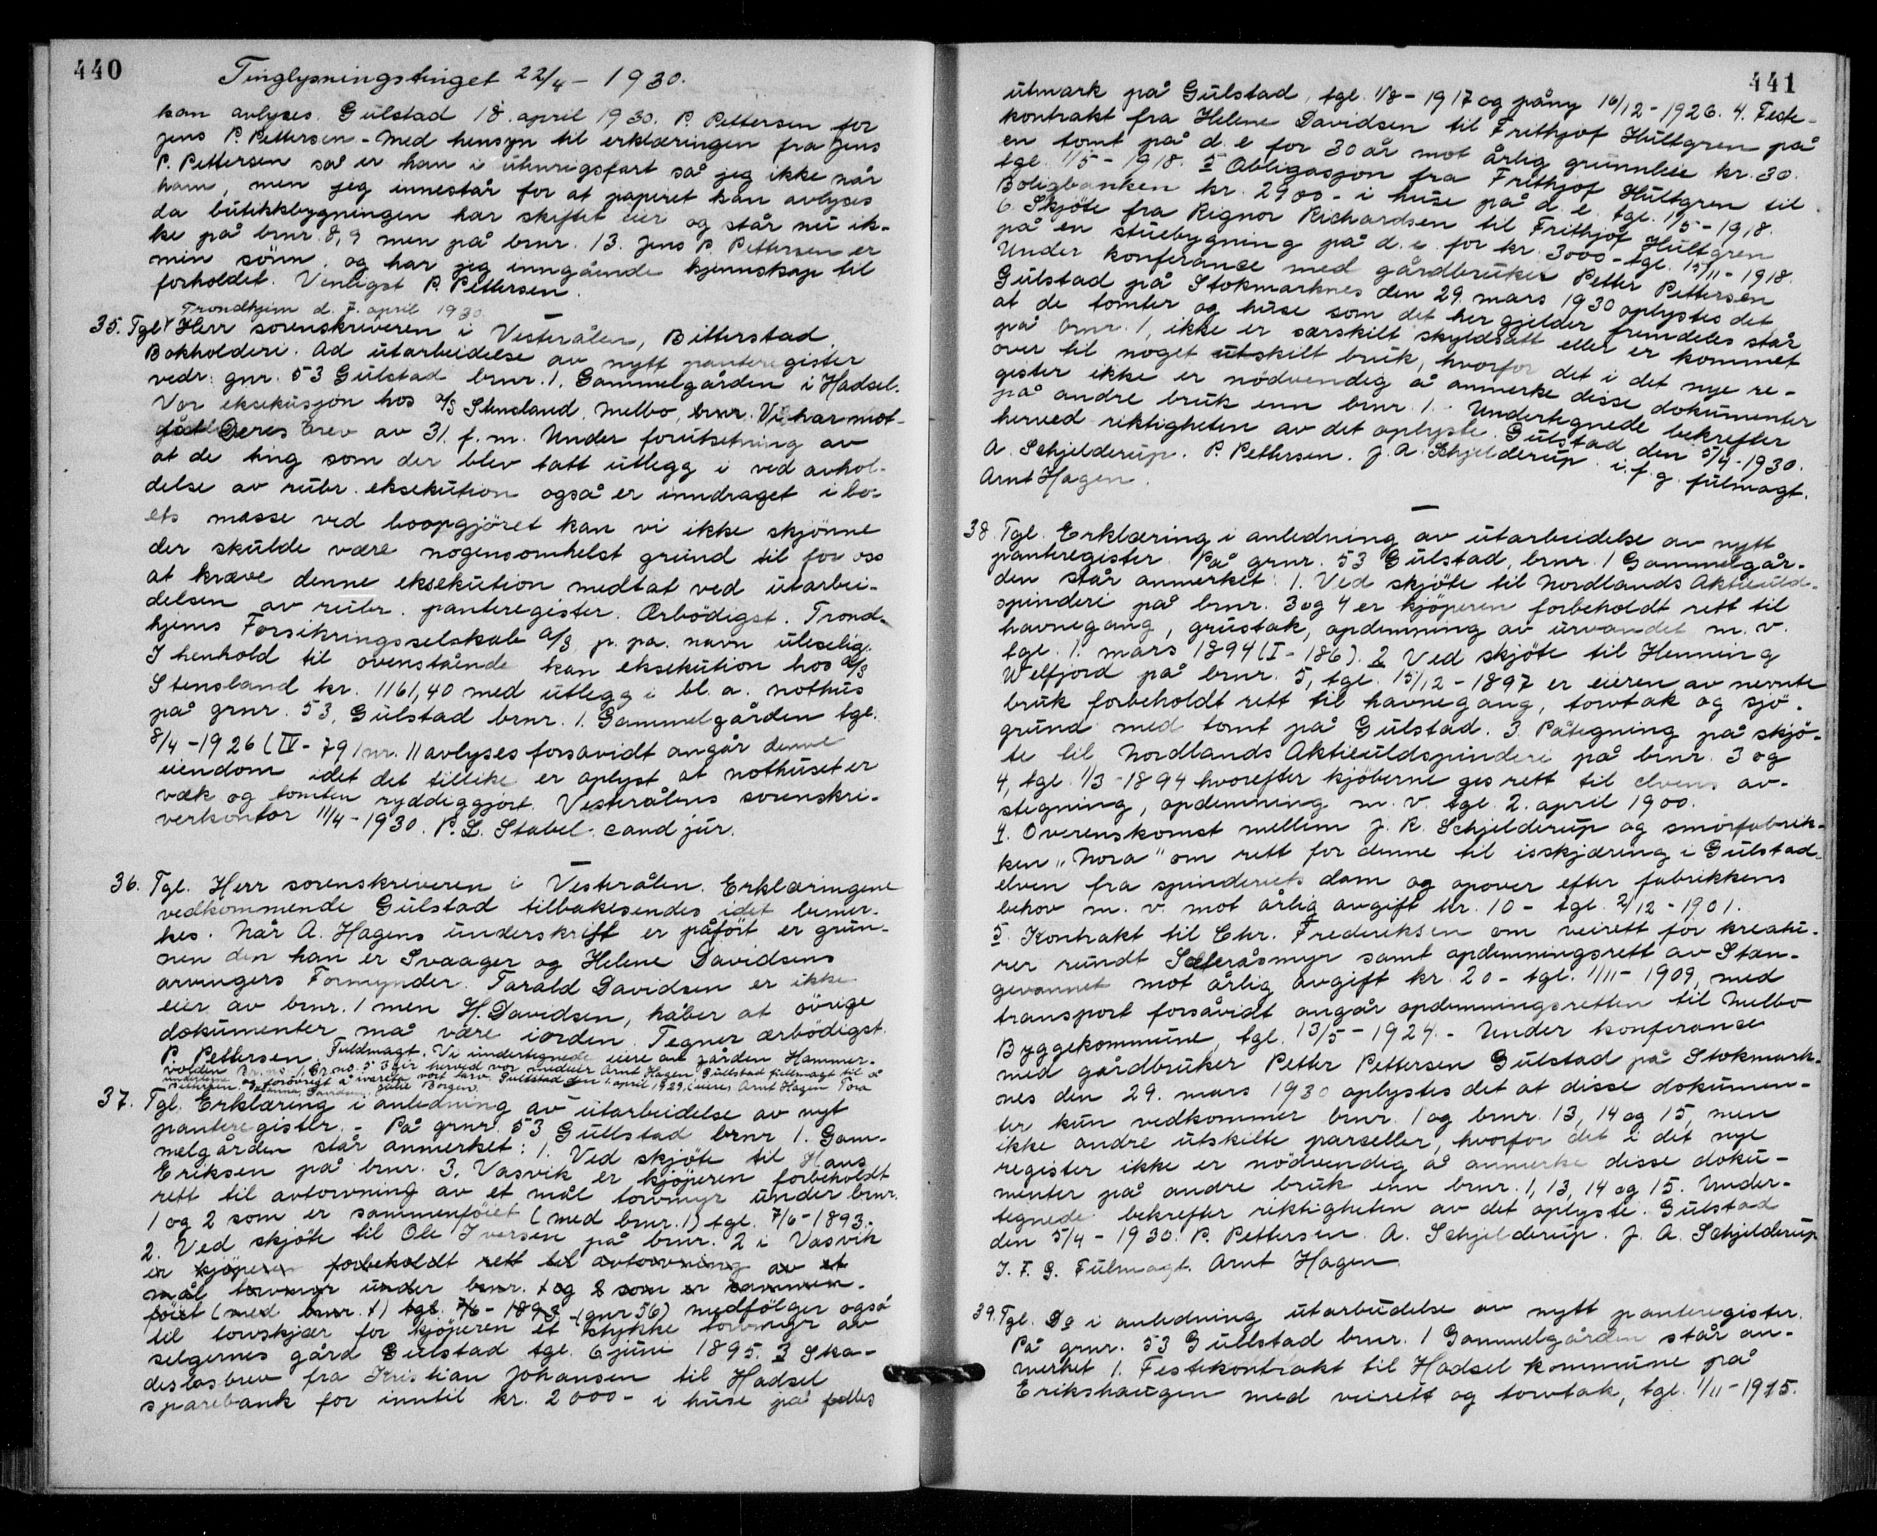 440
Tinglysningstinget 22/4 - 1930.
kan avlyses. Gulstad 18. april 1930. P. Pettersen for
Jens P. Pettersen - Med hensyn til erklæringen fra Jens
P. Pettersen så er han i utenrigsfart så jeg ikke når
ham, men jeg innestår for at papiret kan avlyses
da butikkbygningen har skiftet eier og står nu ik-
ke på brnr. 8, 9 men på brnr. 13. Jens P. Pettersen er
min sönn, og har jeg inngående kjennskap til
forholdet. Venligst P. Pettersen.
Trondhjem d. 7. april 1930.
35. Tgl. Herr sorenskriveren i Vesterålen, Bitterstad.
Bokholderi. Ad utarbeidelse av nytt panteregister
vedr. gnr. 53 Gulstad brnr. 1. Gammelgården i Hadsel.
Vor eksekusjon hos A/S Stensland, Melbo, brnr. Vi har mot-
tatt Deres brev av 31. f. m. Under forutsetning av
at de ting som der blev tatt utlegg i ved avhol-
delse av rubr. eksekution også er inndraget i bo-
ets masse ved boopgjöret kan vi ikke skjönne
der skulde være nogensomhelst grund til for oss
at kræve denne eksekution medtat ved utarbei-
delsen av rubr. panteregister. Ærbödigst. Trond-
hjems Forsikringsselskab A/S p. pa. navn uleselig.
I henhold til ovenstående kan eksekution hos A/S
Stensland kr. 1161,40 med utlegg i bl. a. nothus
på grnr. 53, Gulstad brnr. 1. Gammelgården tgl.
8/4 - 1926 (IV - 79 nr. 1) avlyses forsavidt angår denne
eiendom idet det tillike er oplyst at nothuset er
væk og tomten ryddiggjort. Vesterålens sorenskri-
verkontor 11/4 - 1930. P. L. Stabel. cand jur.
36. Tgl. Herr sorenskriveren i Vesterålen. Erklæringene
vedkommende Gulstad tilbakesendes idet bemer-
kes. Når A. Hagens underskrift er påfört er grun-
nen den han er Svaager og Helene Davidsens
arvingers Formynder. Tarald Davidsen er ikke
eier av brnr. 1 men H. Davidsen, håber at övrige
dokumenter må være iorden. Tegner ærbödigst.
P. Pettersen. Fuldmagt. Vi undertegnede eiere av gården Hammer-
volden br. no. 1, Gr. no. 53 gir herved vor medeier Arnt Hagen, Gullstad fullmagt til å
undertegne og forövrigt å ivareta vort tarv. Gullstad den 1. april 1929. (eiere) Arnt Hagen Tora
Pettersen, Davidsen, Borgen.
37. Tgl. Erklæring i anledning av utarbeidelse av nyt
panteregister. - På grnr. 53 Gullstad brnr 1. Gam-
melgården står anmerket: 1. Ved skjöte til Hans
Eriksen på brnr. 3, Vasvik er kjöperen forbeholdt
rett til avtorvning av et mål torvmyr under brnr.
1 og 2 som er sammenföiet (med brnr. 1) tgl. 7/6 - 1893.
2. Ved skjöte til Ole Iversen på brnr. 2 i Vasvik
er kjöperen forbeholdt rett til avtorvning av et
mål torvmyr under brnr. 1 og 2 som er sammen-
föiet (med brnr. 1) tgl. 7/6 - 1893 (gnr 56) medfölger også
til torvskjær for kjöperen et stykke torvmyr av
selgernes gård Gulstad tgl. 6 juni 1895. 3 Ska-
deslösbrev fra Kristian Johansen til Hadsel
sparebank for inntil kr. 2000 - i huse på felles
441
utmark på Gulstad, tgl. 1/8 - 1917 og påny 16/12 - 1926. 4. Feste-
kontrakt fra Helene Davidsen til Frithjof Hultgren på
en tomt på d. e for 30 år mot årlig grunnleie kr. 30.
tgl. 1/5 - 1918. 5 Obligasjon fra Frithjof Hultgren til
Boligbanken kr. 2900 - i huse på d. e. tgl. 1/5 - 1918.
6. Skjöte fra Rignor Richardsen til Frithjof Hultgren
på en stuebygning på d. e for kr. 3000 - tgl. 15/11 - 1918.
Under konferanse med gårdbruker Petter Pettersen
Gulstad på Stokmarknes den 29. mars 1930 oplystes det
at de tomter og huse som det her gjelder fremdeles står
på brnr. 1, ikke er særskilt skyldsatt eller er kommet
over til noget utskilt bruk, hvorfor det i det nye re-
gister ikke er nödvendig å anmerke disse dokumenter
på andre bruk enn brnr. 1. Undertegnede bekrefter
herved riktigheten av det oplyste. Gulstad den 5/4 - 1930.
A. Schjelderup. P. Pettersen. J. A. Schjelderup. i. f. g. fulmagt.
Arnt Hagen.
38. Tgl. Erklæring i anledning av utarbeidelse av nytt
panteregister. På grnr. 53 Gulstad, brnr. 1 Gammelgår-
den står anmerket: 1. Ved skjöte til Nordlands Aktieuld-
spinderi på brnr. 3 og 4 er kjöperen forbeholdt rett til
havnegang, grustak, opdemning av urvandet m. v.
tgl. 1. mars 1894 (I - 186). 2 Ved skjöte til Henning
Welfjord på brnr. 5, tgl. 15/12 - 1897 er eieren av nevnte
bruk forbeholdt rett til havnegang, torvtak og sjö-
grund med tomt på Gulstad. 3. Påtegning på skjö-
te til Nordlands Aktieuldspinderi på brnr. 3 og
4, tgl. 1/3 - 1894 hvorefter kjöberne ges rett til elvens av-
stegning, opdemning m. v. tgl. 2. april 1900.
4. Overenskomst mellem J. R. Schjelderup og smörfabrik-
ken "Nora" om rett for denne til isskjæring i Gulstad-
elven fra spinderiets dam og opover efter fabrikkens
behov m. v. mot årlig avgift kr. 10 - tgl. 2/12 - 1901.
5. Kontrakt til Chr. Frederiksen om veirett for kreatu-
rer rundt Sæteråsmyr samt opdemningsrett av Stan-
gevannet mot årlig avgift kr. 20 - tgl. 1/11 - 1909, med
transport forsåvidt angår opdemningsretten til Melbo
Byggekommune, tgl. 13/5 - 1924. - Under konferanse
med gårdbruker Petter Pettersen Gulstad på Stokmark-
nes den 29. mars 1930 oplystes det at disse dokumen-
ter kun vedkommer brnr. 1 og brnr. 13, 14 og 15, men
ikke andre utskilte parseller, hvorfor det i det nye
register ikke er nödvendig å anmerke disse doku-
menter på andre bruk enn brnr. 1, 13, 14 og 15. Under-
tegnede bekrefter riktigheten av det oplyste. Gulstad
den 5/4 - 1930. P. Pettersen. A. Schjelderup. J. A. Schjelderup
I. F. G. Fulmagt. Arnt Hagen.
39. Tgl. Do i anledning utarbeidelse av nytt panteregister.
På grnr. 53 Gullstad brnr. 1 Gammelgården står an-
merket 1. Festekontrakt til Hadsel kommune på
Erikshaugen med veirett og torvtak, tgl. 1/11 - 1915.